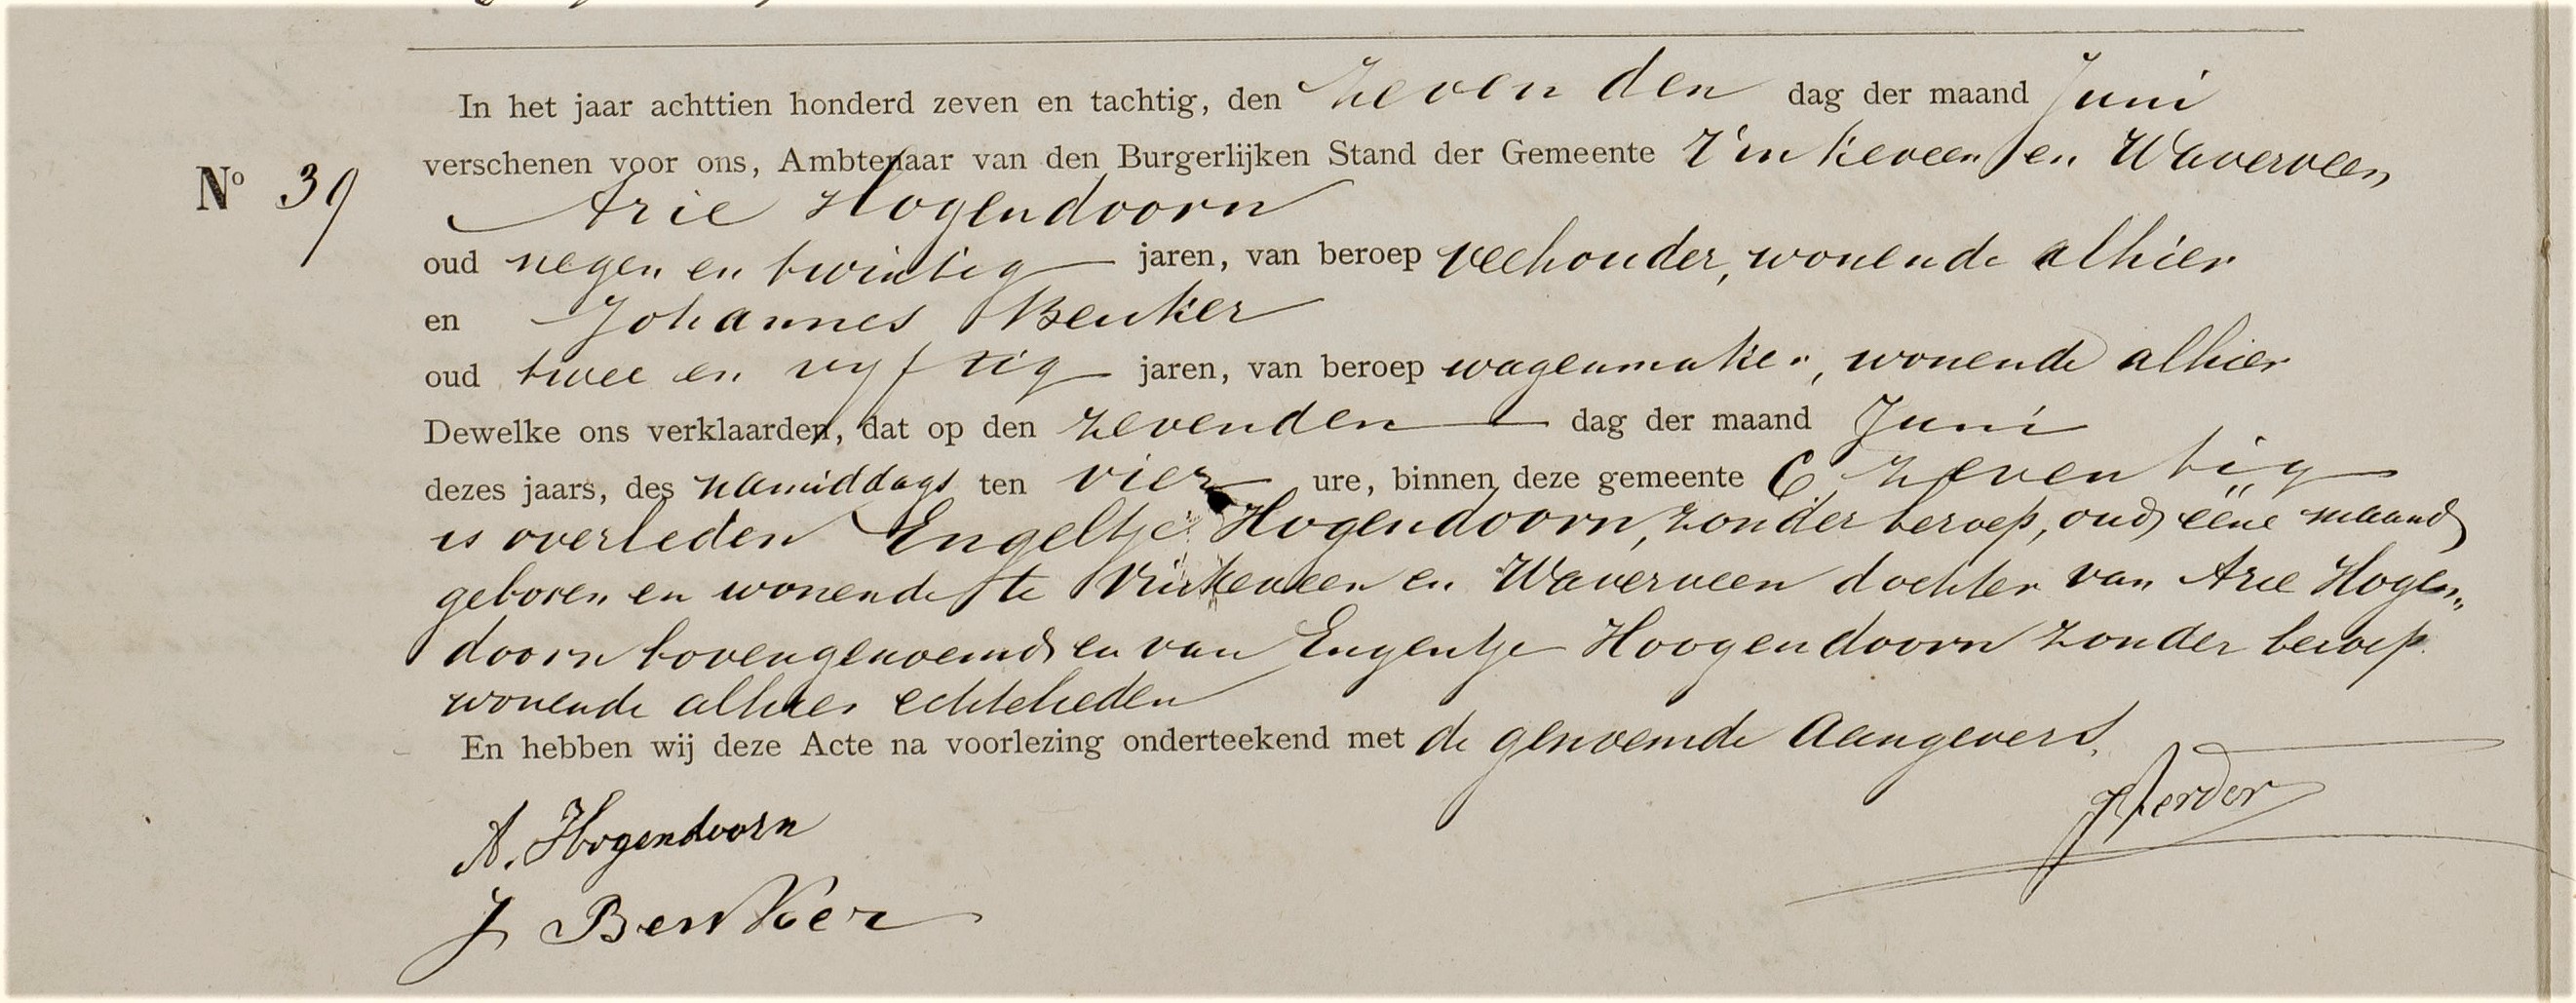 In het jaar achttien honderd zeven en tachtig, den zevenden dag der maand Juni
verschenen voor ons, Ambtenaar van den Burgerlijken Stand der Gemeente Vinkeveen en Waverveen
No 39
Arie Hogendoorn
oud negen en twintig jaren, van beroep veehouder, wonende alhier
en Johannes Benker
oud twee en vyftig jaren, van beroep wagenmaker, wonende alhier
Dewelke ons verklaarden, dat op den zevenden dag der maand Juni
dezes jaars, des namiddags ten vier ure, binnen deze gemeente C zeventig
is overleden Engeltje Hogendoorn, zonder beroep, oud ééne maand
geboren en wonende te Vinkeveen en Waverveen dochter van Arie Hogen„
doorn bovengenoemd en van Engentje Hoogendoorn zonder beroep
wonende alhier echtelieden
En hebben wij deze Acte na voorlezing onderteekend met de genoemde aangevers.
A. Hogendoorn
J Benker